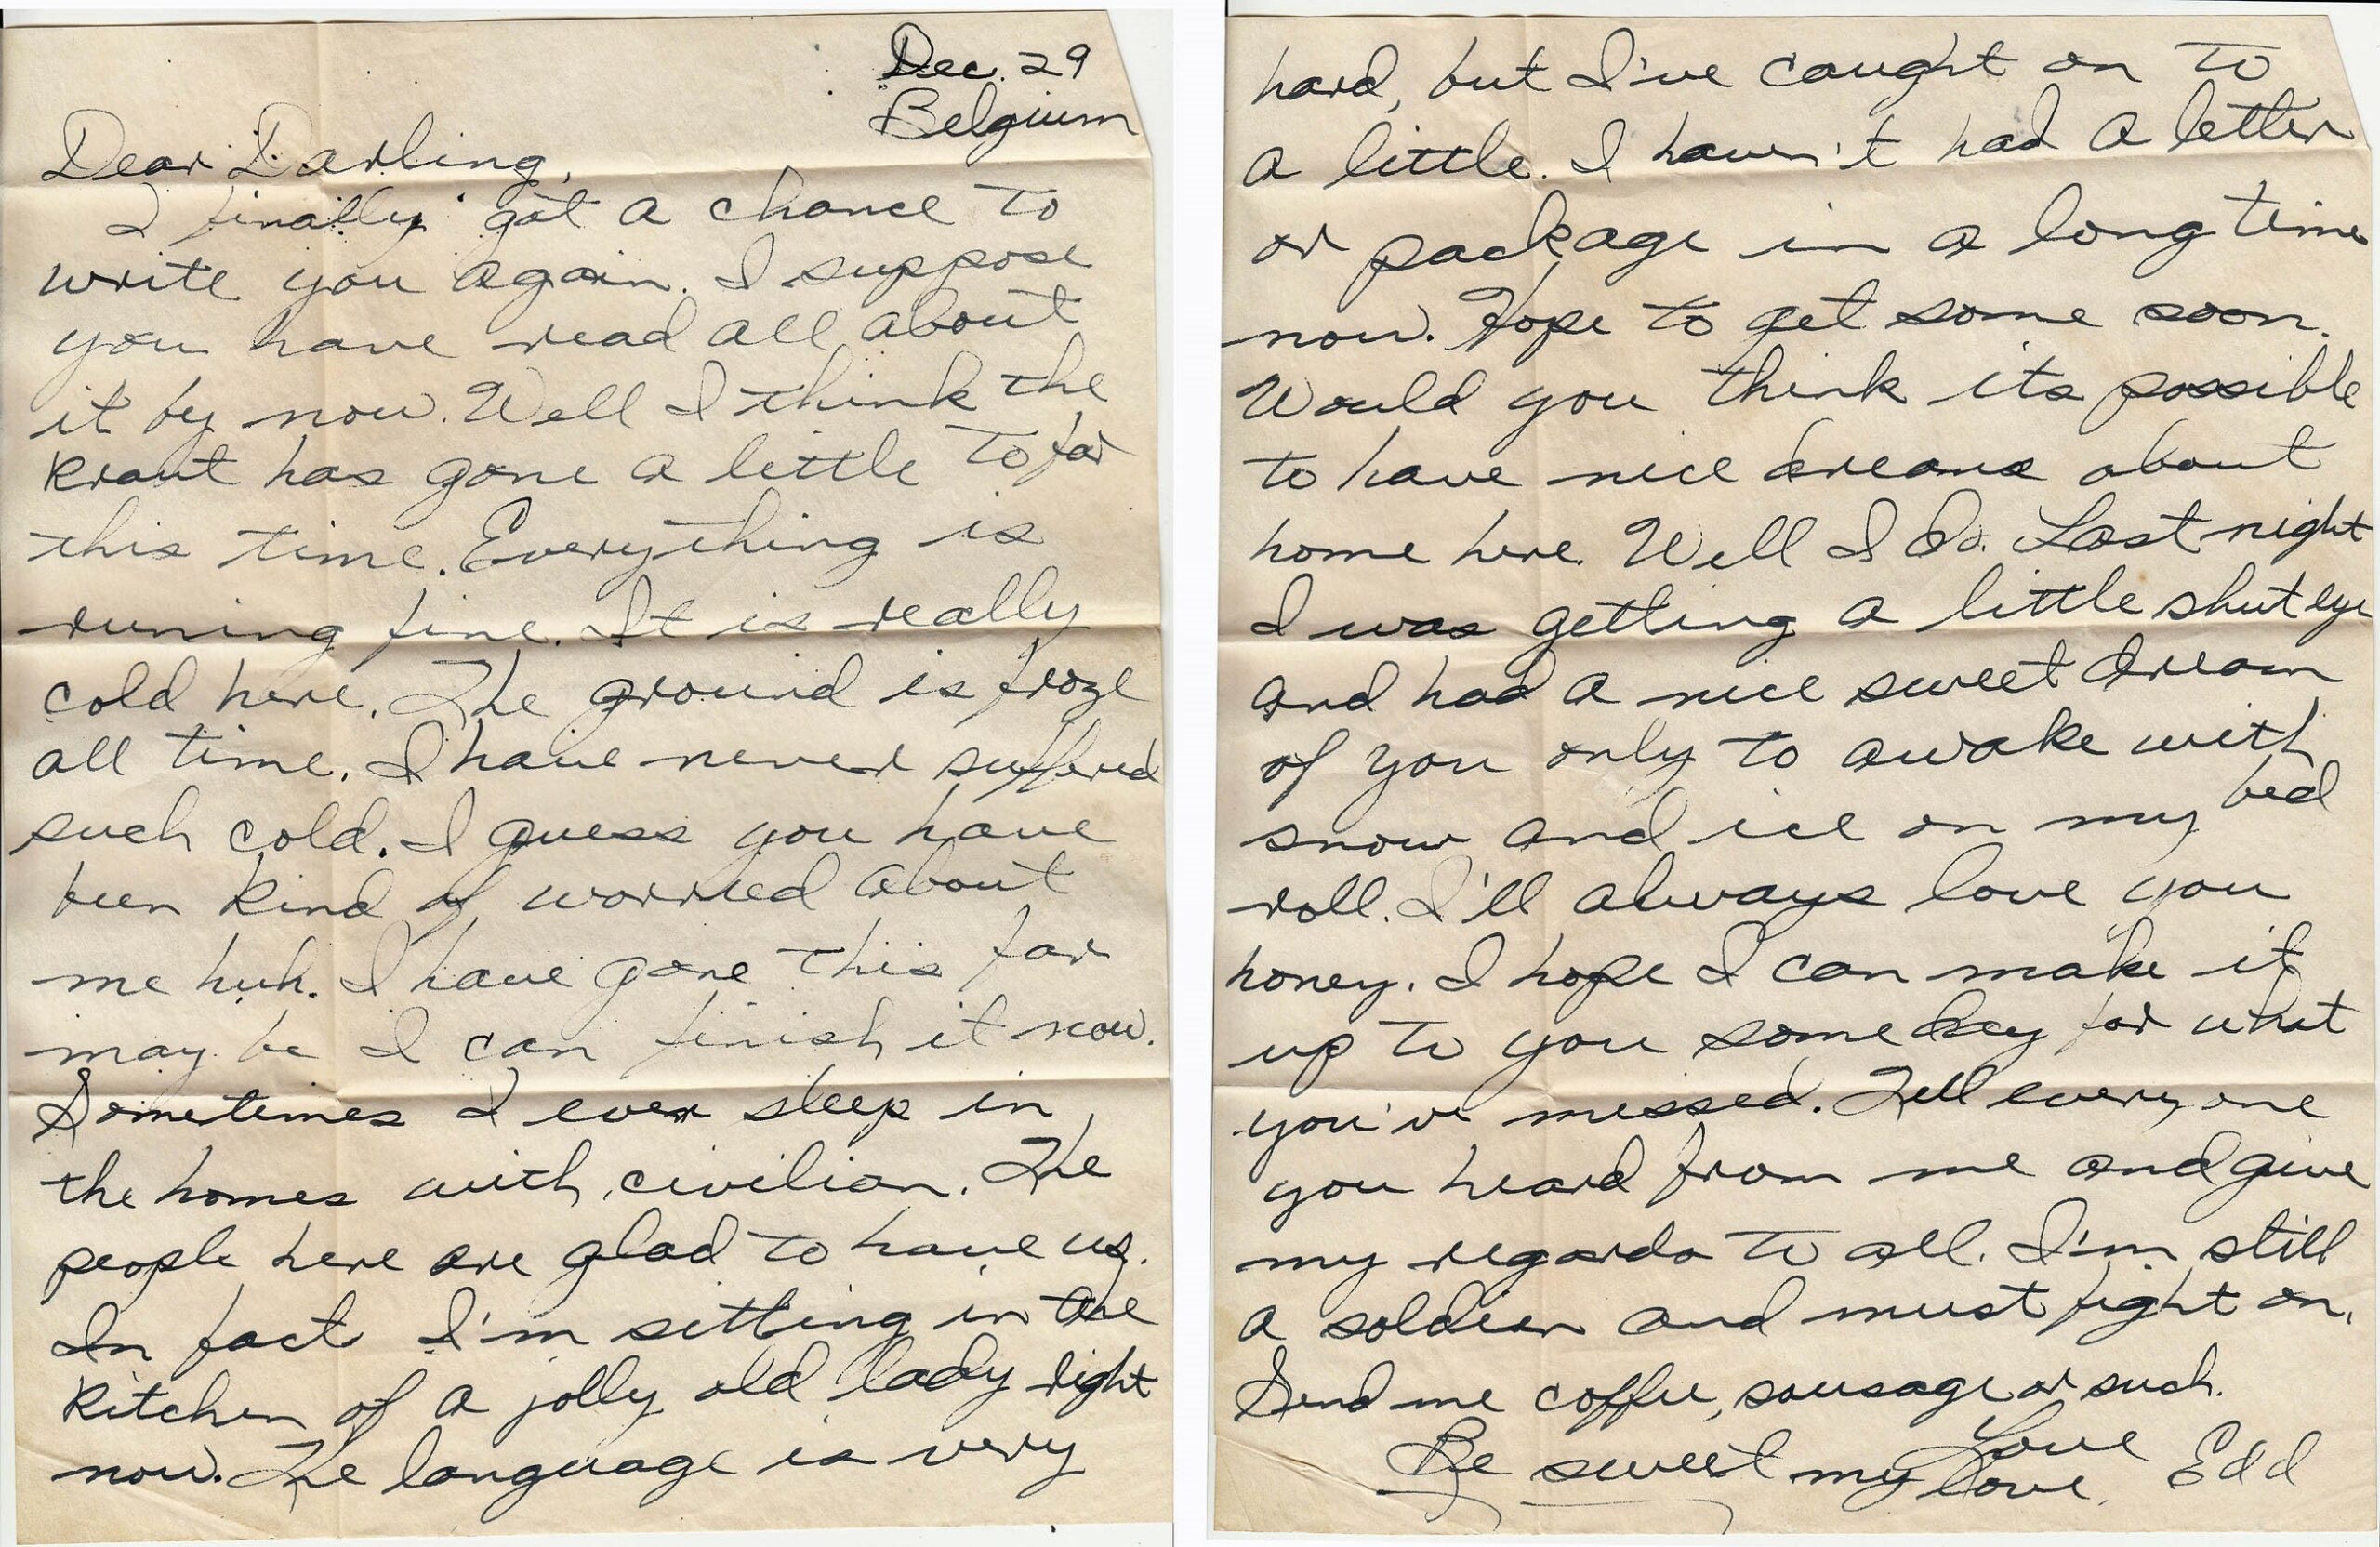 Dec. 29
Belgium
Dear Darling,
I finally got a chance to
write you again. I suppose
you have read all about
it by now. Well I think the
Kraut has gone a little to far
this time. Everything is
runing fine. It is really
cold here. The ground is froze
all time. I have never suffered
such cold. I guess you have
been kind of worried about
me huh. I have gone this far
may be I can finish it now.
Sometimes I even sleep in
the homes with civilian. The
people here are glad to have us.
In fact I'm sitting in the
kitchen of a jolly old lady right
now. The language is very
hard, but I've caught on to
a little. I haven't had a letter
or package in a long time
now. Hope to get some soon.
Would you think its possible
to have nice dreams about
home here. Well I do. Last night
I was getting a little shut eye
and had a nice sweet dream
of you only to awake with
snow and ice on my bed
roll. I'll always love you
honey. I hope I can make it
up to you some day for what
you've missed. Tell every one
you heard from me and give
my regards to all. I'm still
a soldier and must fight on.
Send me coffee, sausage or such.
Love
Be sweet my love. Edd